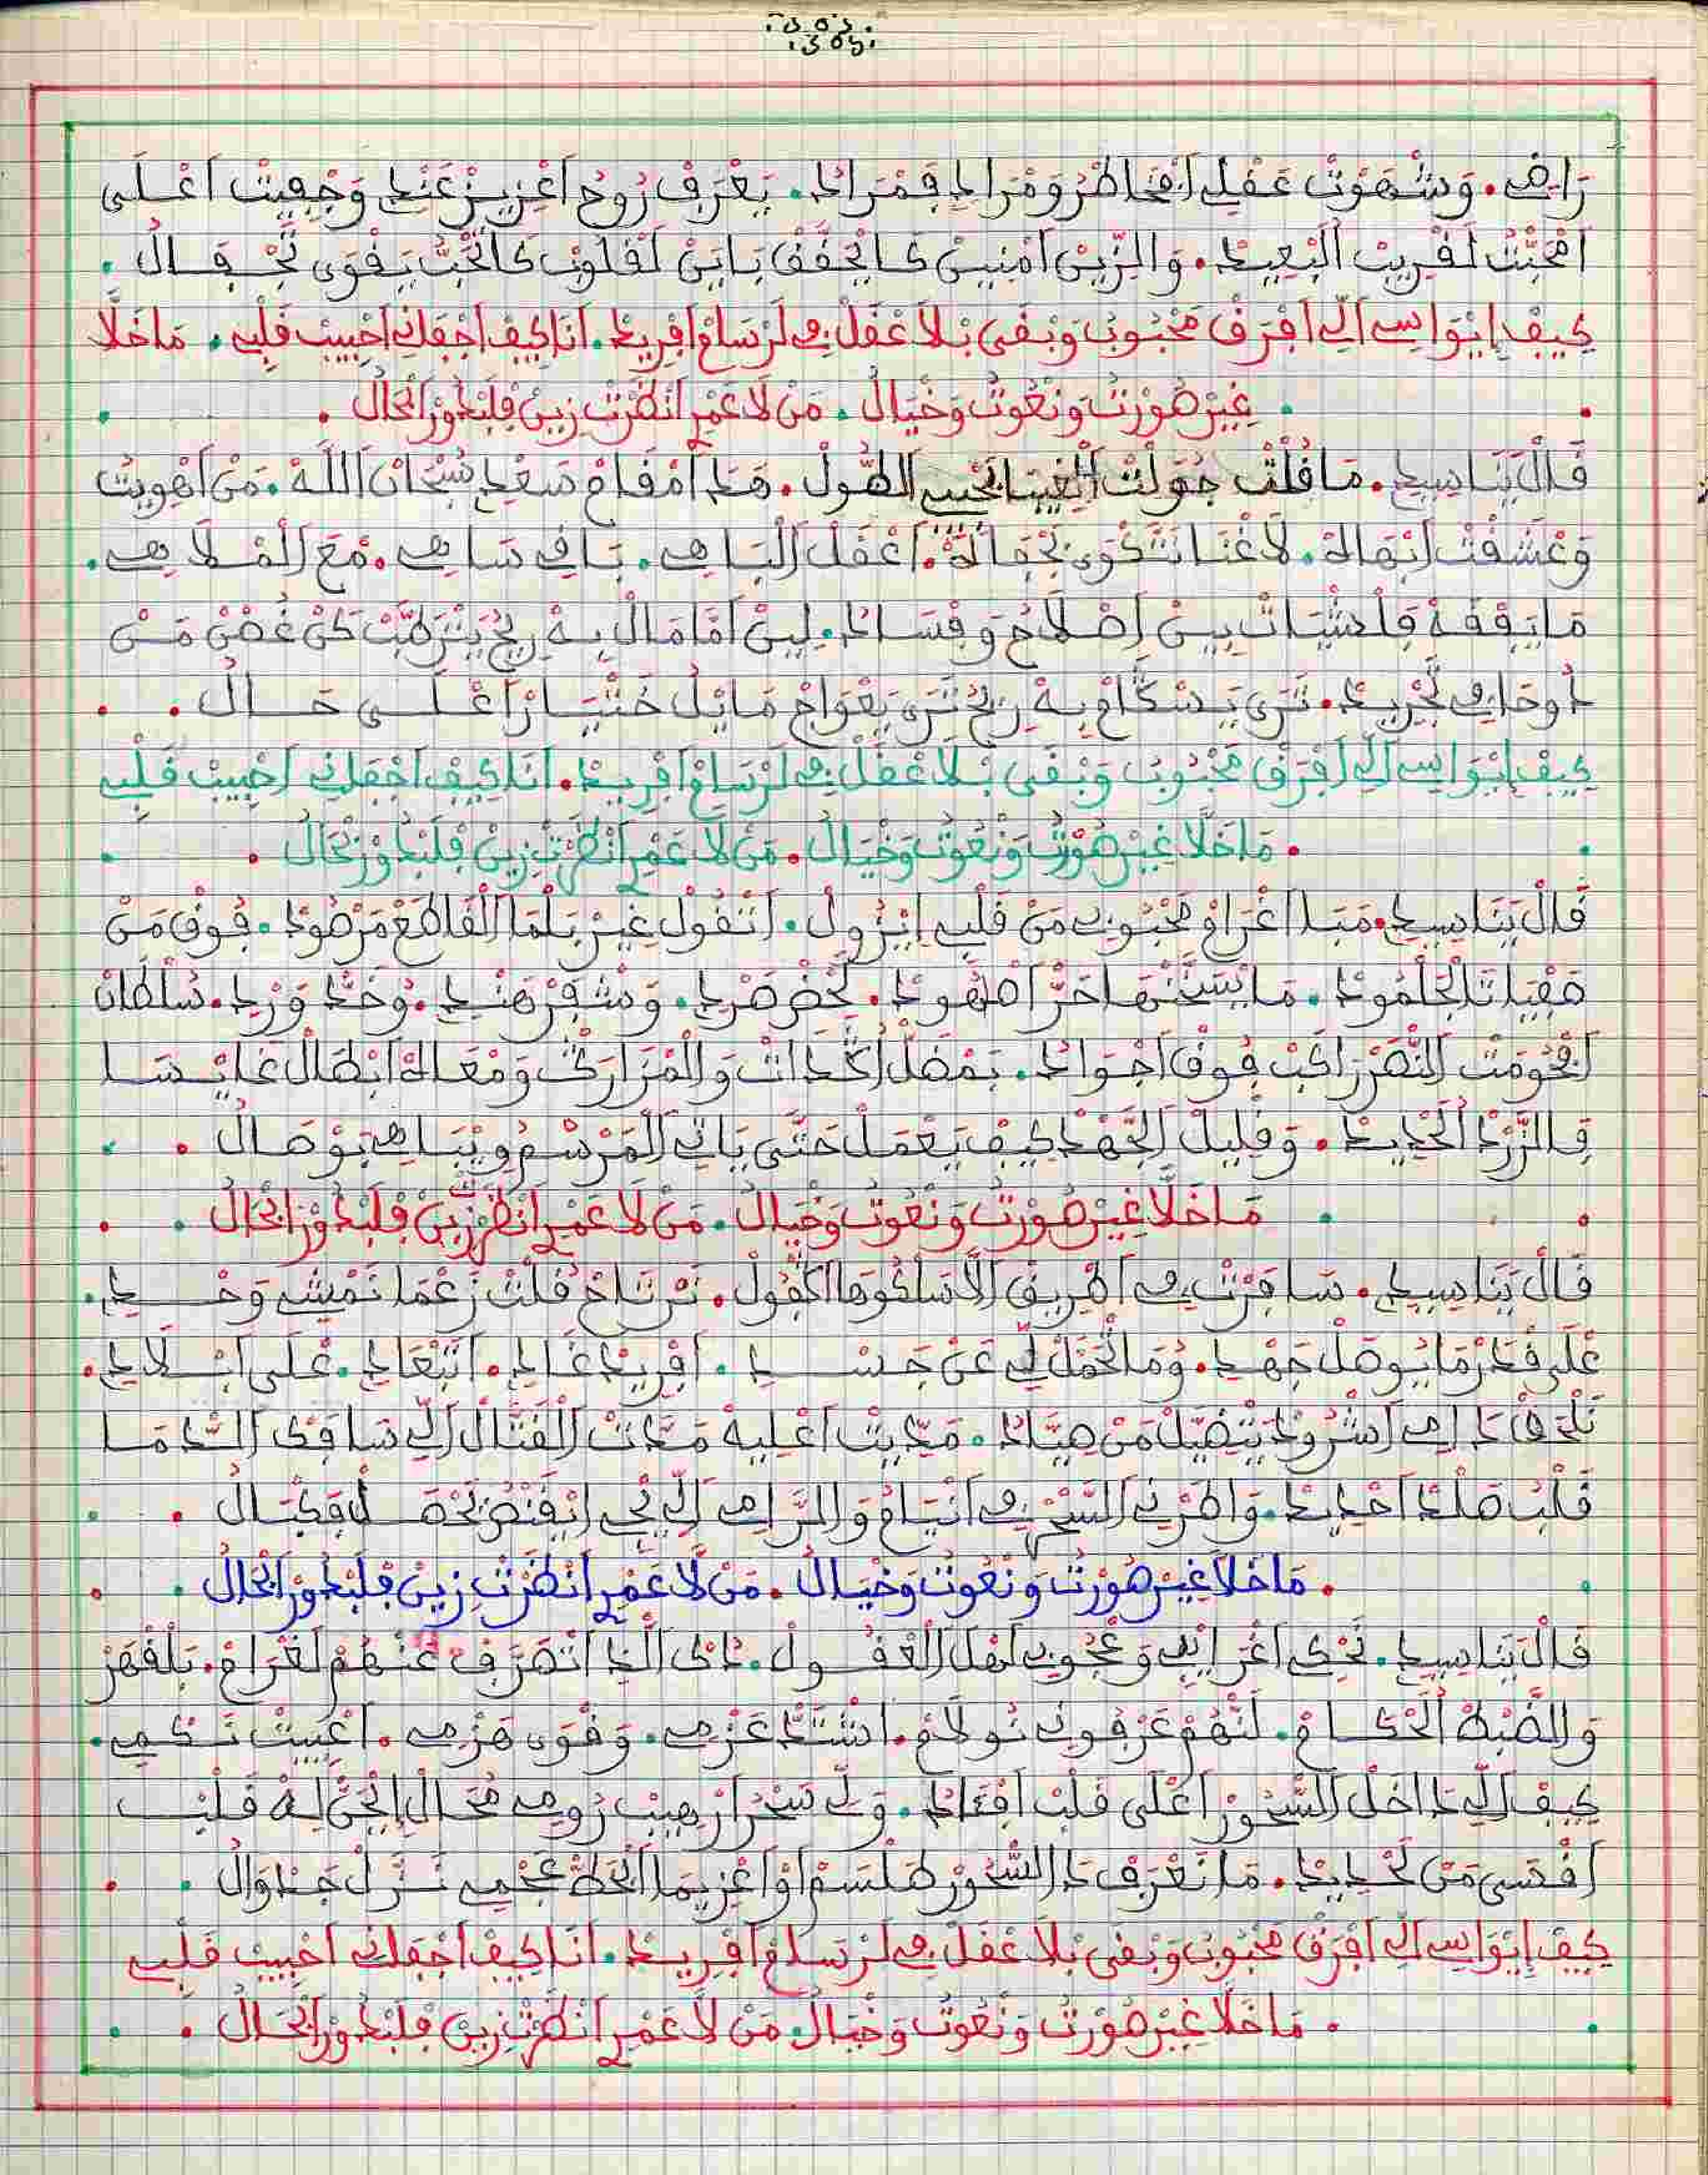 .305.
.305.
راضي . وشهوت عقلي افخاطر ومرادي فمراد . يعرف روح اعزيز عندي وجفيت اعلى
امحبت لقريب البعيد . والزين امنين كايجفف ياتي لقلوب كالحب يقوى تجفال .
كيف إيواسي الي افرق محبوب وبقى بلا عقل في لرسام افريد . انا كيف اجفاني احبيب قلبي . ماخلا
غير صورت ونعوت وخيال . من لا عمر انظرت زين قلبي ورالحال .
قال يناسيدي . ما قلت الصول . هدا امقام سعدي سبحان الله . من اهويت
وعشقت ابهاه . لاغنا نتكوى بجفاه . اعقل الباهي . باقي ساهي . مع الملاهي .
ما يفقه فلشيات بين اصلاح وفساد . لين اما مال به ريح يترطب كن غصن من
دوحا في تجريد . ترى يسكام به ريح ترى يعوام مايل ختيار اعلى حال .
كيف إيواسي الي افرق محبوب وبقى بلا عقل في لرسام افريد . انا كيف اجفاني احبيب قلبي
. ماخلا غير صورت ونعوت وخيال . من لا عمر انظرت زين قلبي ورالحال .
قال يناسيدي . مبدا اغرام محبوبي من قلبي ايزول . اتقول غير بلما القاطع مرصود . فوق من
الجلمود . ما حر اصهود . لخضر صردي . وشفر هندي . وخد وردي . سلطان
ابحومت النصر راكب فوق اجواد . بمضل اكدات والمزارك ومعاه ابطال غايسا
في الزرد الحديد . وقليل الجهد كيف يعمل حتى ياتي المرسم ويباهي بوصال .
ماخلا غير صورت ونعوت وخيال . من لا عمر انظرت زين قلبي ورالحال .
قال يناسيدي . سافرت في اطريق الا سلكوها اكفول . نرتاح قلت زعما نمشي وحدي .
على قدر ما يوصل جهدي . وما نحمل لي عن جسدي . افريد غادي . اتبعادي . على ابلادي .
نلحق دامي اشرود يتضيل من صياد . مديت اعليه مدت القتال الي ساقى الدما
قلب صلد احديد . واطرني السحر في انيام والرامي الي يجي ايقنص نحصل فكبال .
. ماخلا غير صورت ونعوت وخيال . من لا عمر انظرت زين قلبي ورالحال .
قال يناسيدي . نحكي اغرايبي وعجوبي لهل العقول . داكى الدا اتصرف عنهم لغرام . بلقهر
والضبط الحكام . لنهم عرفوني نولام . اشتد عزمي . وقوى هزمي . اعييت نكمي .
كيف الي داخل السحور اعلى قلب افداد . ولي سحرا رهيب رومي محال ايحن له قلب
اقسى من لحديد . ما نعرف دا السحور طلسم او اعزيما الخط عجمي نزل جداوال .
كيف إيواسي الي افرق محبوب وبقى بلا عقل في لرسام افريد . انا كيف اجفاني احبيب قلبي
. ماخلا غير صورت ونعوت وخيال . من لا عمر انظرت زين قلبي ورالحال .